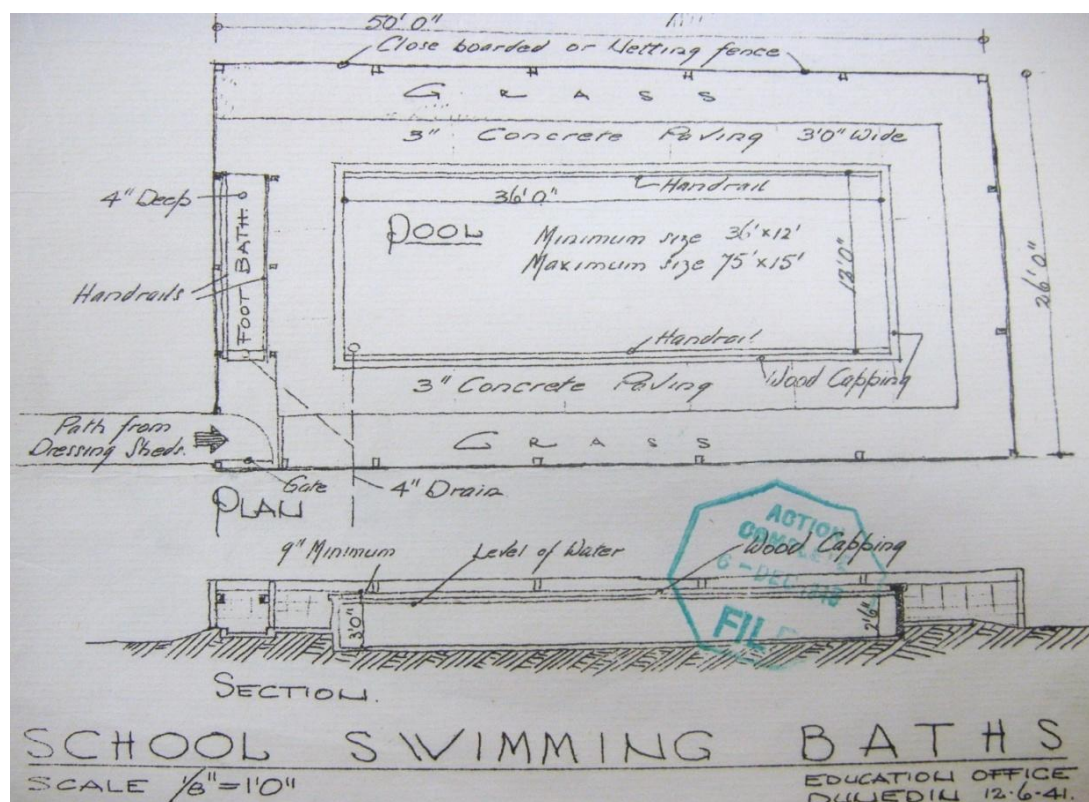 50'0"
Close boarded or Netting fence
GRASS
3" Concrete Paving 3'0" Wide
4" Deep
Handrail
36'0"
POOL
Minimum size 36'x12'
Maximum size 75'x15'
12'0"
26'0"
FOOT BATH
Handrails
Handrail
3" Concrete Paving
Wood Capping
Path from
Dressing Sheds.
GRASS
Gate
4" Drain
PLAN
9" Minimum
Level of Water
Wood Capping
ACTION
COMPLETE
6 - DEC
FILE
3'0"
2'6"
SECTION.
SCHOOL SWIMMING BATHS
SCALE 1/8"=1'0"
EDUCATION OFFICE
DUNEDIN 12.6.41.